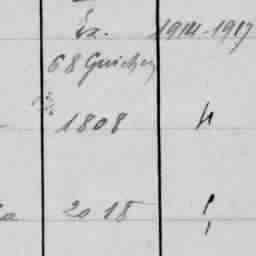 Ex. 1914-1917
68 Guichen
1808 4
2018